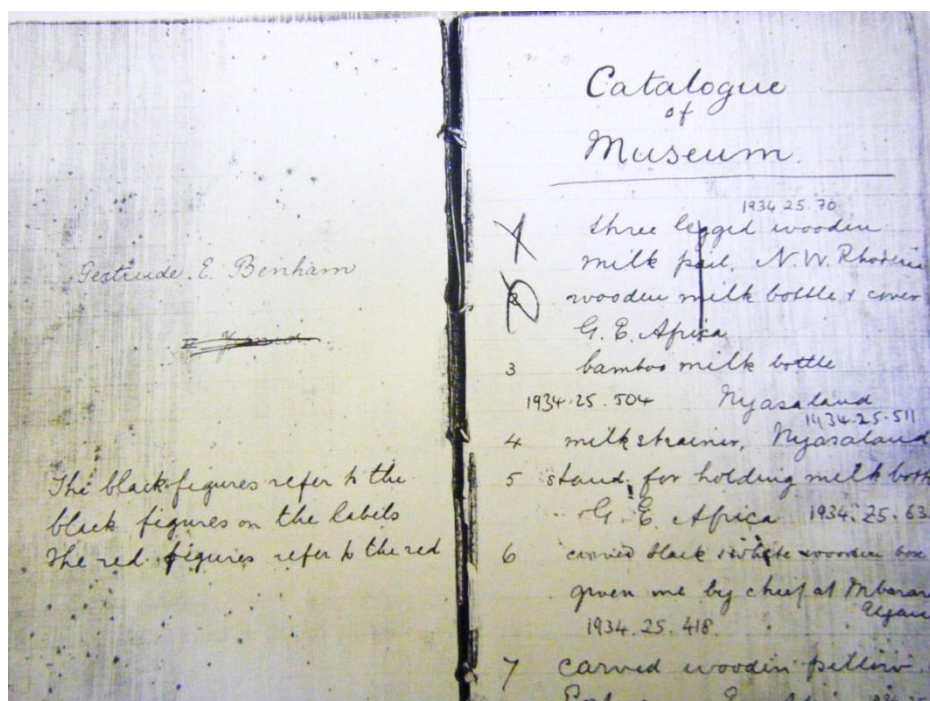 Gertrude. E. Benham
The black figures refer to the
black figures on the labels
The red figures refer to the red
Catalogue
of
Museum.
1934.25.70
1 three legged wooden
milk pail. N.W. Rhodesia
2 wooden milk bottle & cover
G. E. Africa
3 bamboo milk bottle
1934.25.504 Nyasaland
1934.25.511
4 milk strainer, Nyasaland
5 stand for holding milk bott
G. E. Africa 1934.25.63
6 carved black & white wooden box
given me by chief at Mbarar
Ugan
1934.25.418.
7 carved wooden pillow.